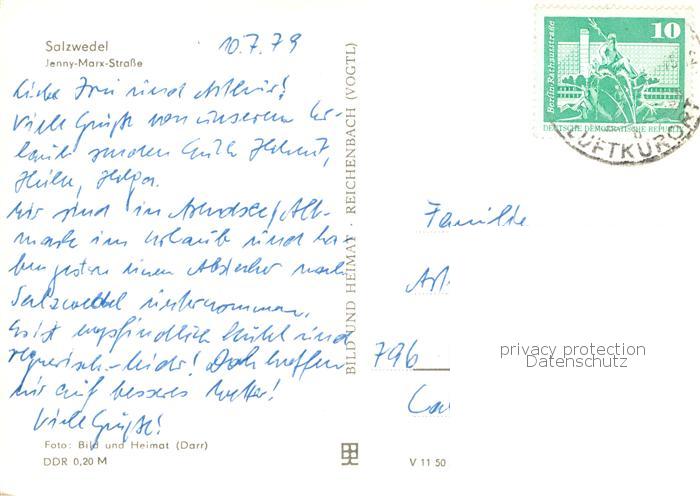 Salzwedel
Jenny-Marx-Straße
10.7.79
Viele Grüße von unserem Ur-
laub senden Euch Helmut,
Helga.
Wir sind in Arendsee/Alt-
mark im Urlaub und ha-
ben gestern einen Abstecher nach
Salzwedel unternommen.
Es ist empfindlich kühl und
regnerisch - leider! Doch hoffen
wir auf besseres Wetter!
Viele Grüße!
Foto: Bild und Heimat (Darr)
DDR 0,20 M
V 11 50
BILD UND HEIMAT · REICHENBACH (VOGTL)
10
Berlin·Rathausstraße
DEUTSCHE DEMOKRATISCHE REPUBLIK
LUFTKURORT
Familie
796
privacy protection
Datenschutz